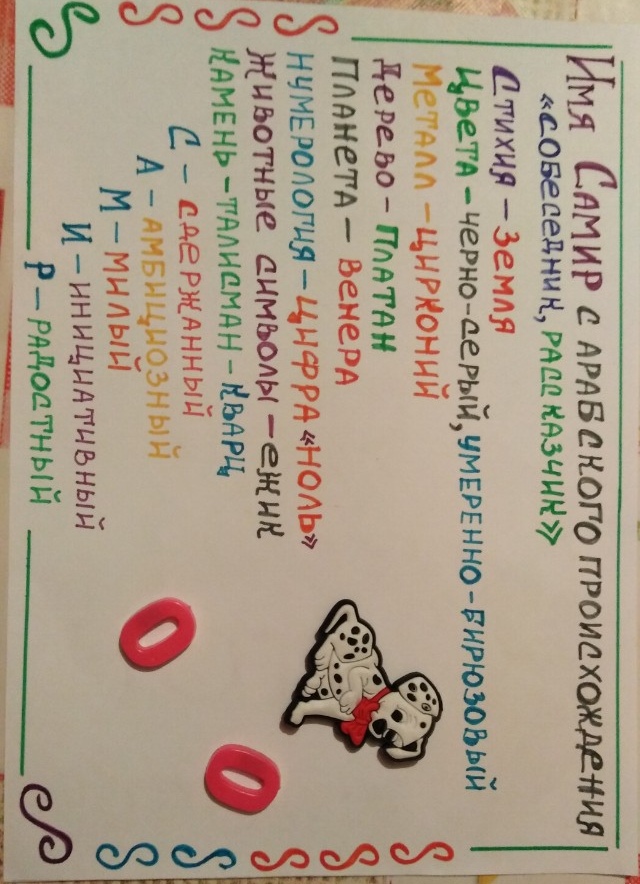 Имя Самир с арабского происхождения
«собеседник, рассказчик»
Стихия – Земля
Цвета – черно-серый, умеренно-бирюзовый
Металл – цирконий
Дерево – платан
Планета – Венера
Нумерология – цифра «ноль»
Животные символы – ежик
Камень – талисман – кварц
С – сдержанный
А – амбициозный
М – милый
И – инициативный
Р – радостный